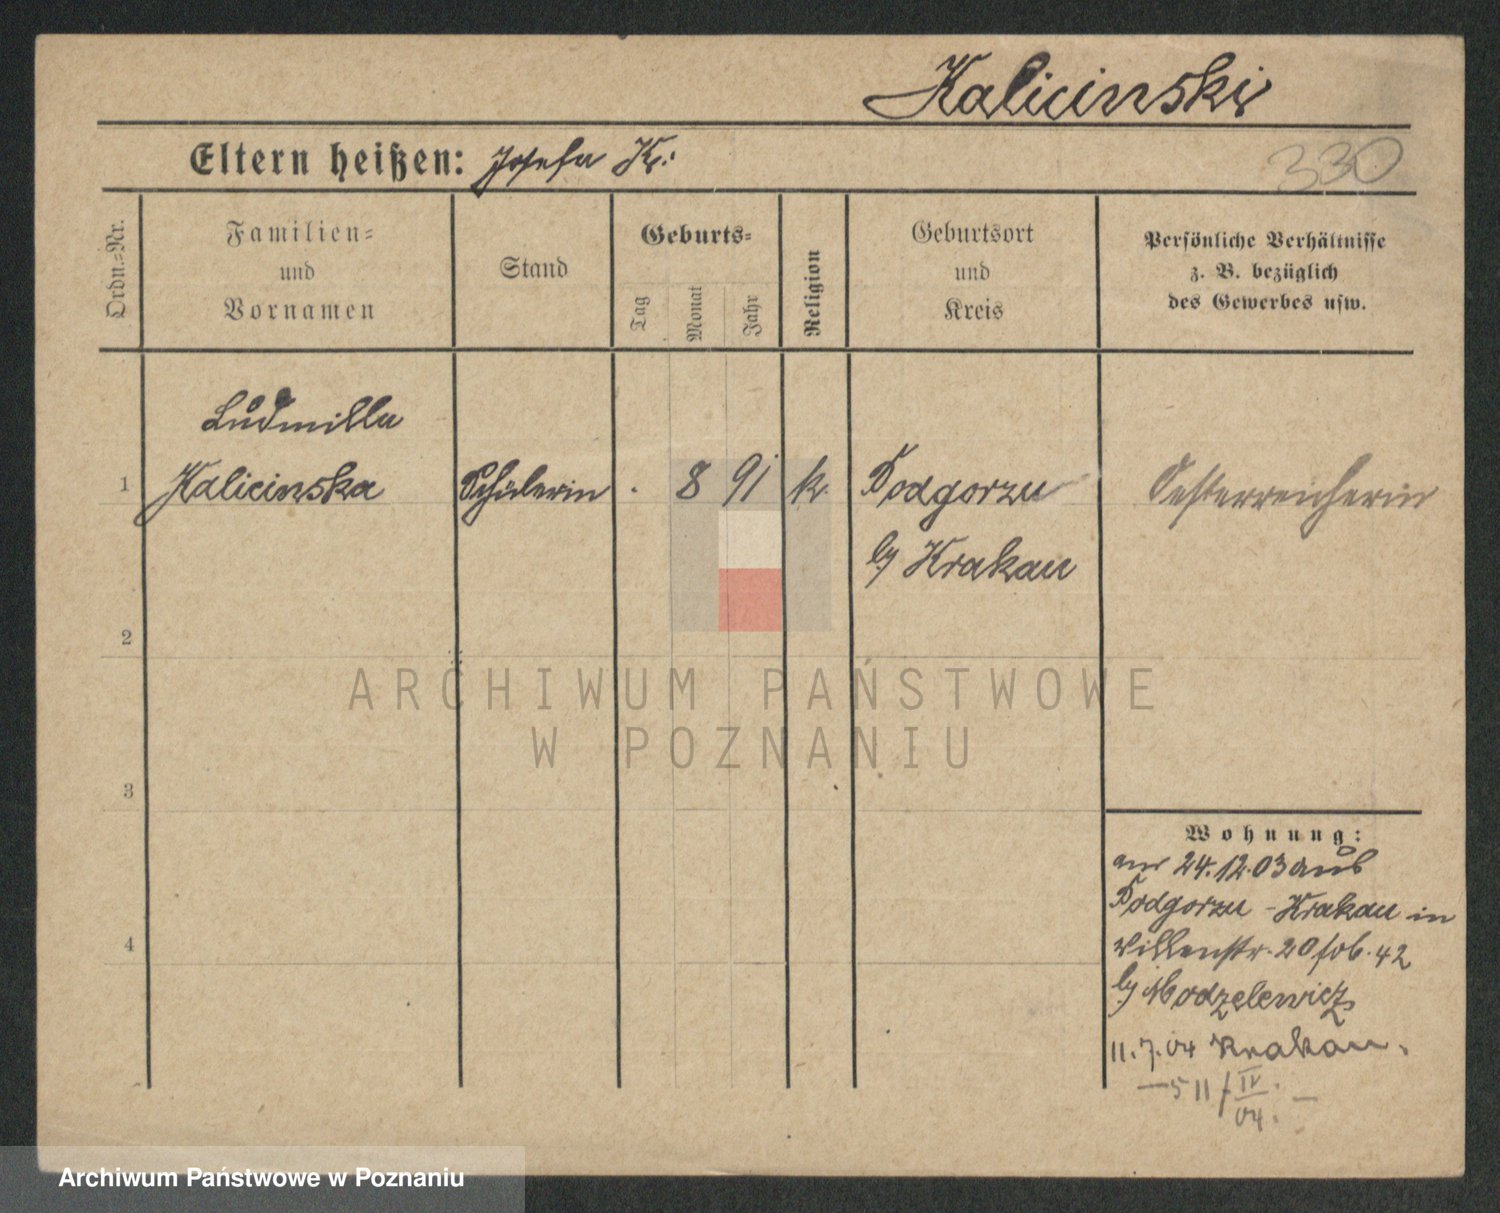 Kalicinski
Eltern heißen: Josefa K.
330
Ordn.-Nr.
Familien-
und
Vornamen
Stand
Geburts-
Tag
Monat
Jahr
Religion
Geburtsort
und
Kreis
Persönliche Verhältnisse
z. B. bezüglich
des Gewerbes usw.
Ludmilla
1 Kalicinska Schülerin . 8 91 k. Podgorzu Oesterreicherin
by Krakau
2
ARCHIWUM PAŃSTWOWE
W POZNANIU
3
Wohnung:
24.12.03 aus
Podgorzu - Krakau in
4
Willenstr. 20 42
by Modzelewicz
11.7.04 Krakau.
511/IV
04.
Archiwum Państwowe w Poznaniu